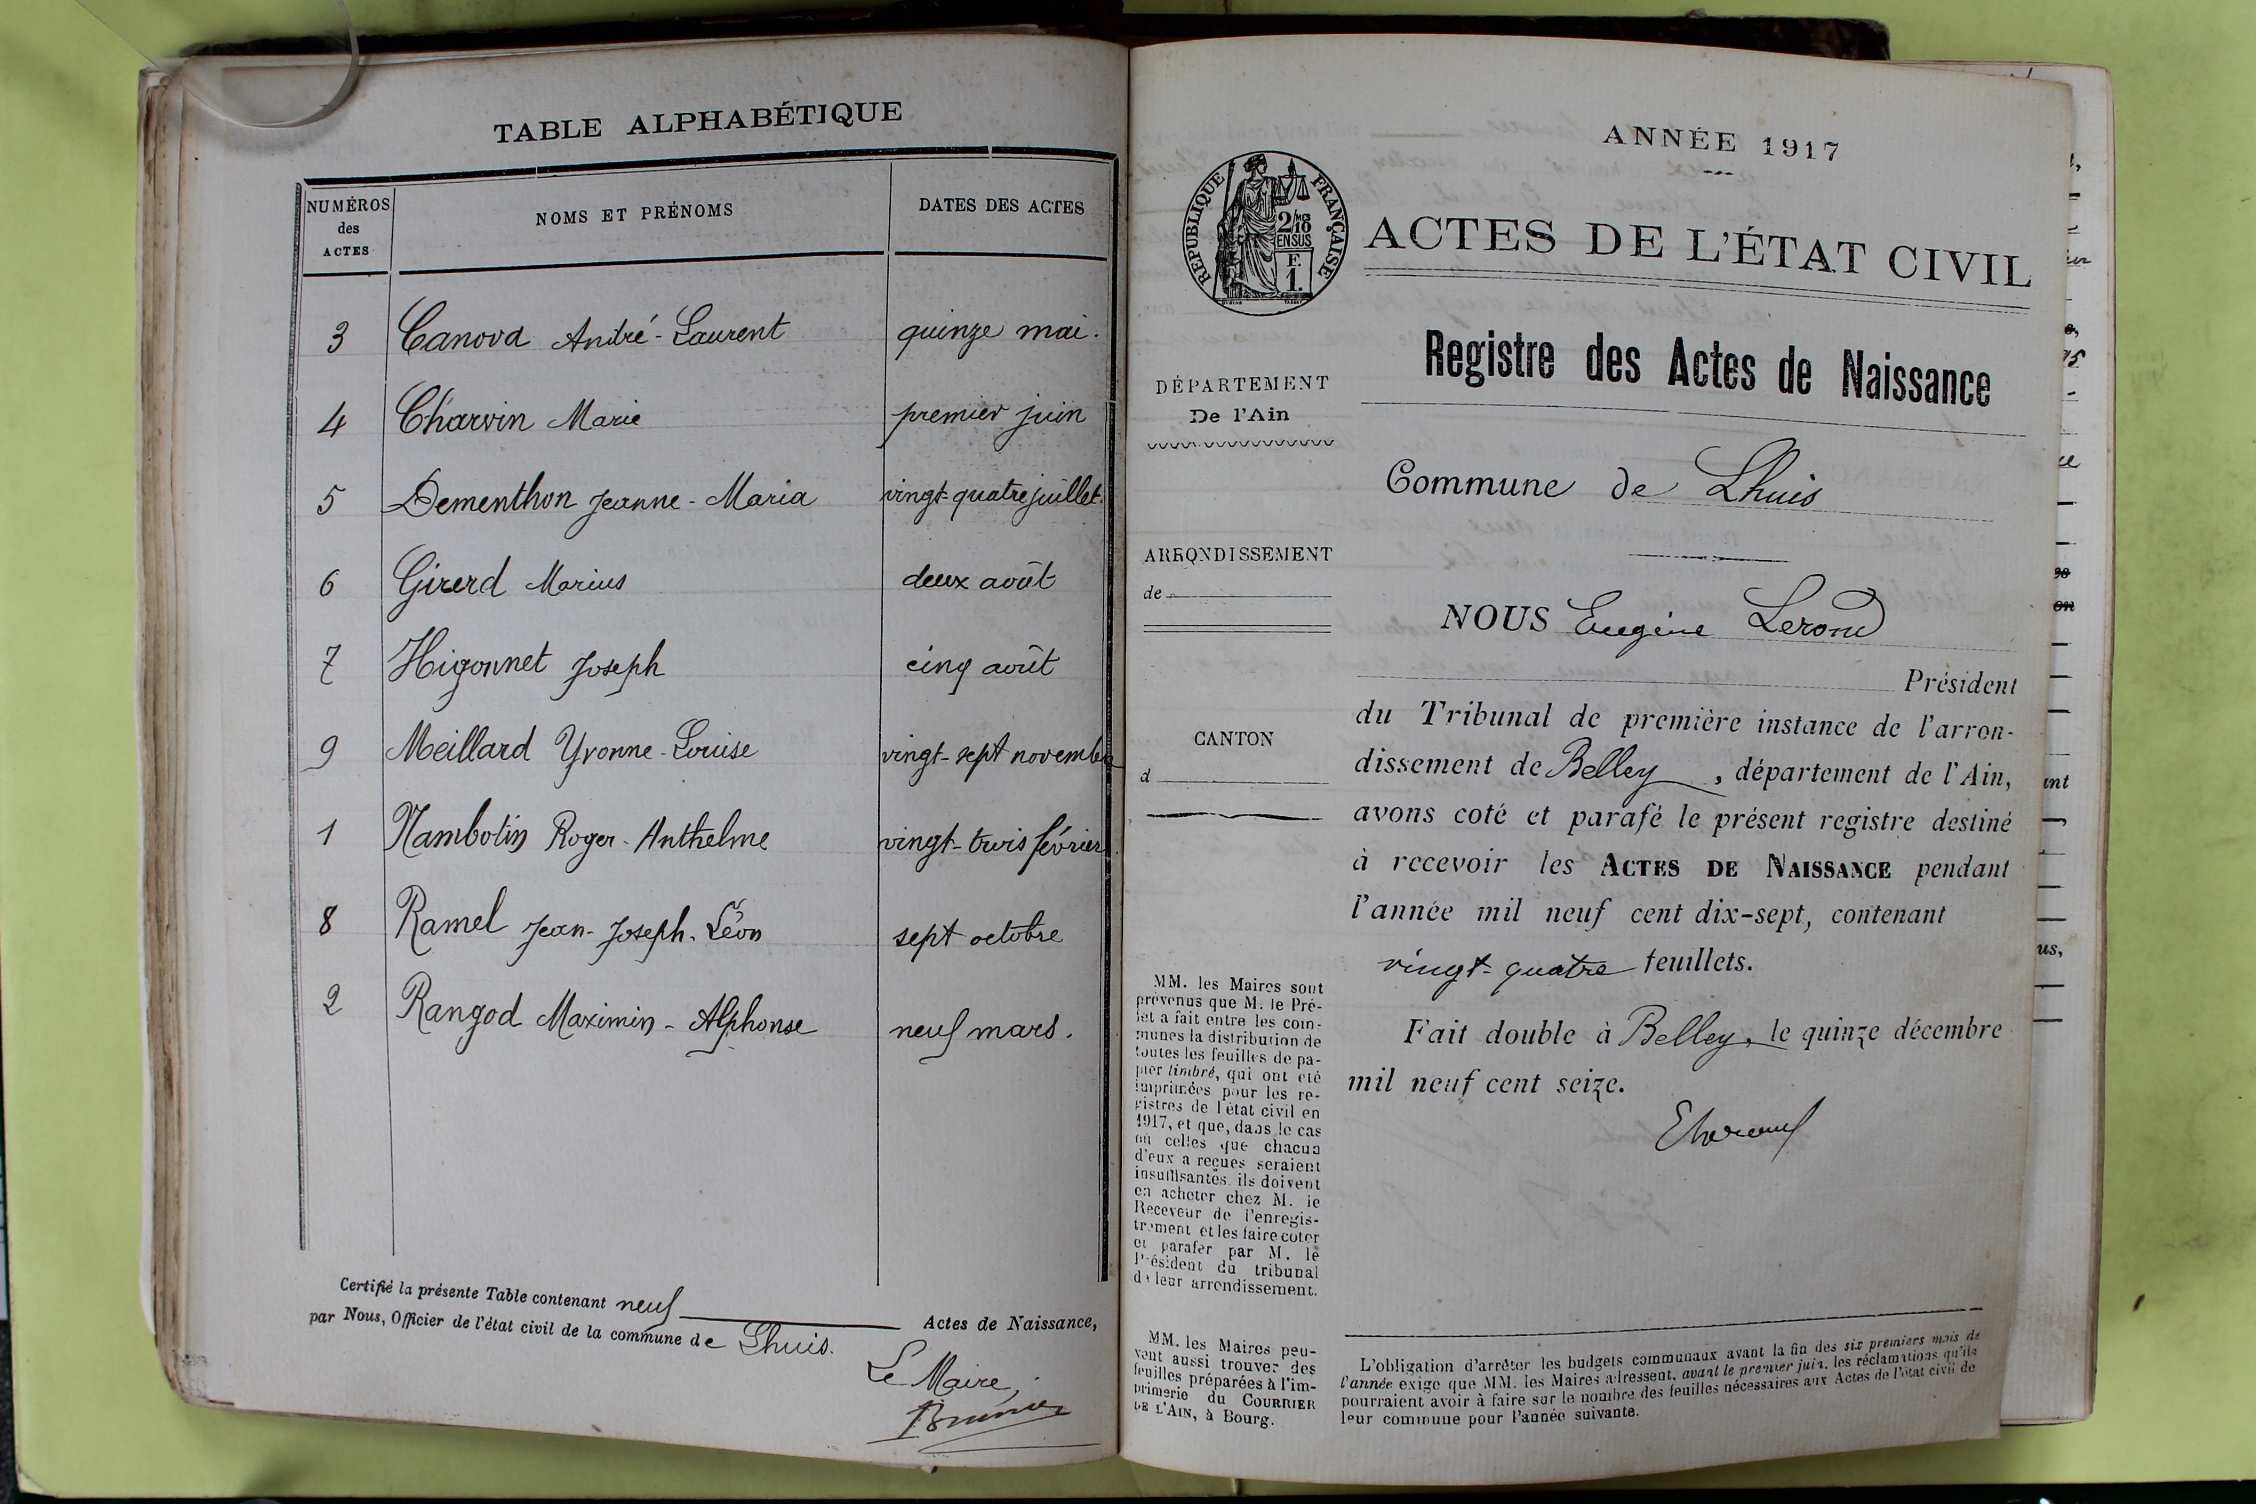 TABLE ALPHABÉTIQUE
NUMÉROS
des
ACTES
NOMS ET PRÉNOMS
DATES DES ACTES
3 Canova André-Laurent quinze mai.
4 Charvin Marie premier juin
5 Dementhon Jeanne-Maria vingt-quatre juillet.
6 Girerd Marius deux août
7 Higonnet Joseph cinq août
9 Meillard Yvonne-Louise vingt-sept novembre
1 Nambotin Roger-Anthelme vingt-trois février.
8 Ramel Jean-Joseph-Léon sept octobre
2 Rangod Maximin-Alphonse neuf mars.
Certifié la présente Table contenant neuf Actes de Naissance,
par Nous, Officier de l'état civil de la commune de Lhuis.
Le Maire,
ANNÉE 1917
RÉPUBLIQUE FRANÇAISE
2/10
EN SUS
E.
1.
ACTES DE L'ÉTAT CIVIL
Registre des Actes de Naissance
DÉPARTEMENT
De l'Ain
Commune de Lhuis
ARRONDISSEMENT
de
CANTON
d
NOUS Eugène Lerond
Président
du Tribunal de première instance de l'arron-
dissement de Belley, département de l'Ain,
avons coté et parafé le présent registre destiné
à recevoir les ACTES DE NAISSANCE pendant
l'année mil neuf cent dix-sept, contenant
vingt-quatre feuillets.
Fait double à Belley, le quinze décembre
mil neuf cent seize.
MM. les Maires sont
prévenus que M. le Pré-
fet a fait entre les com-
munes la distribution de
toutes les feuilles de pa-
pier timbré, qui ont été
imprimées pour les re-
gistres de l'état civil en
1917, et que, dans le cas
où celles que chacun
d'eux a reçues seraient
insuffisantes, ils doivent
en acheter chez M. le
Receveur de l'enregis-
trement et les faire coter
et parafer par M. le
Président du tribunal
de leur arrondissement.
MM. les Maires peu-
vent aussi trouver des
feuilles préparées à l'im-
primerie du COURRIER
DE L'AIN, à Bourg.
L'obligation d'arrêter les budgets communaux avant la fin des six premiers mois de
l'année exige que MM. les Maires adressent, avant le premier juin, les réclamations qu'ils
pourraient avoir à faire sur le nombre des feuilles nécessaires aux Actes de l'état civil de
leur commune pour l'année suivante.